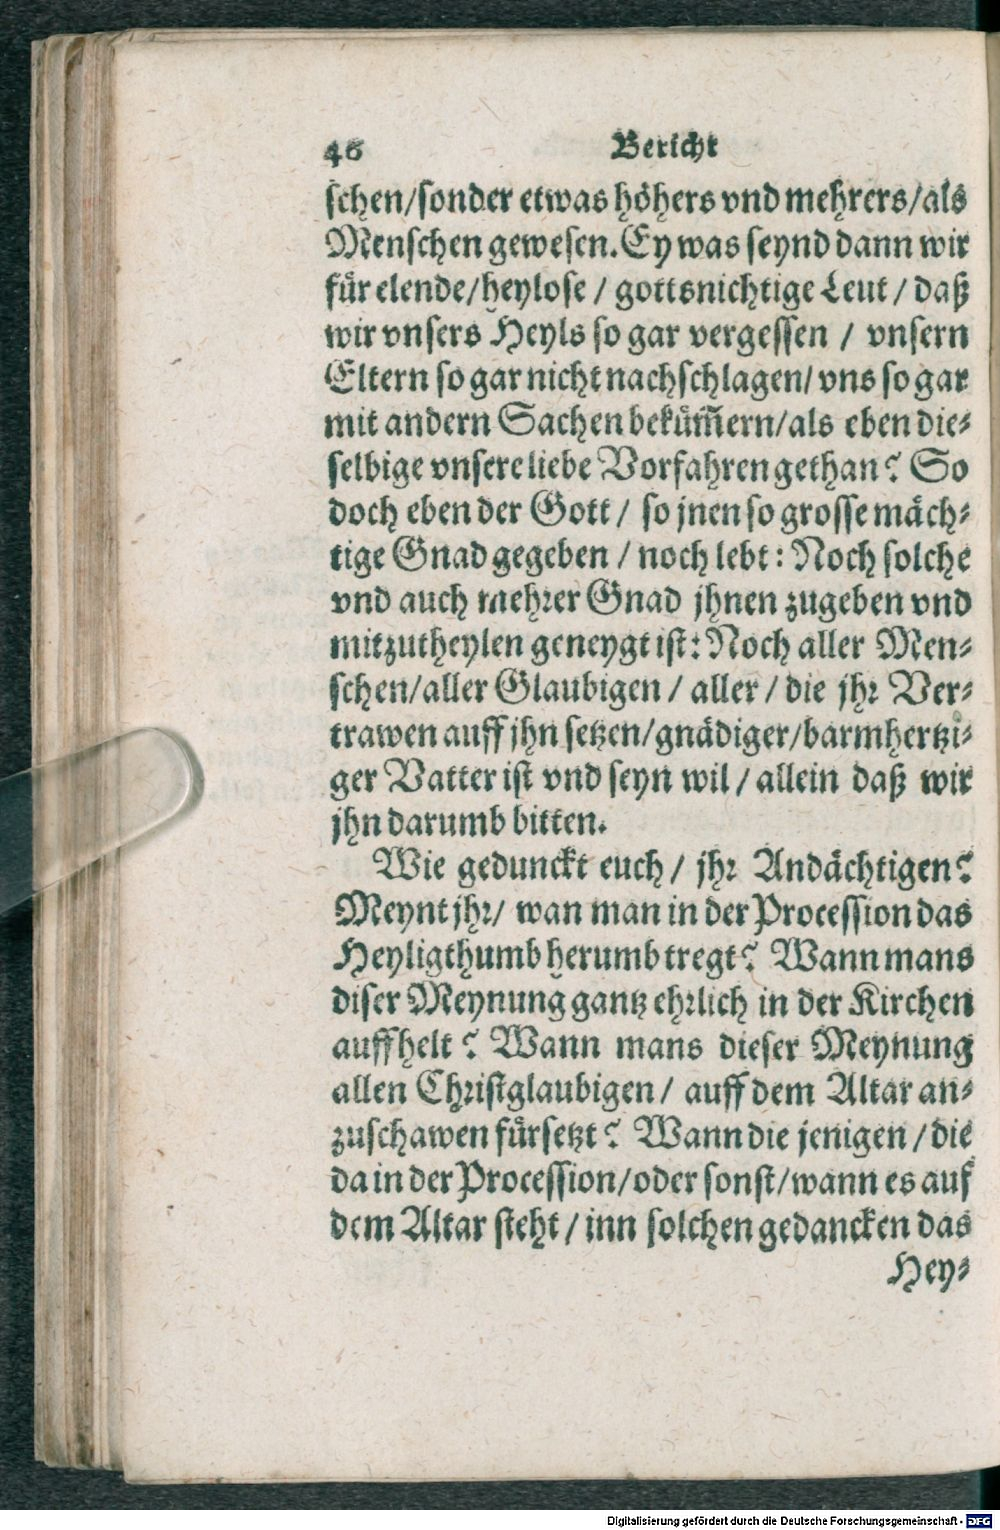 46 Bericht
schen/sonder etwas höhers vnd mehrers/als
Menschen gewesen. Ey was seynd dann wir
für elende/heylose / gottsnichtige Leut / daß
wir vnsers Heyls so gar vergessen / vnsern
Eltern so gar nicht nachschlagen/ vns so gar
mit andern Sachen beküm̃ern/als eben die-
selbige vnsere liebe Vorfahren gethan? So
doch eben der Gott / so jnen so grosse mäch-
tige Gnad gegeben / noch lebt: Noch solche
vnd auch mehrer Gnad jhnen zugeben vnd
mitzutheylen geneygt ist: Noch aller Men-
schen/aller Glaubigen / aller / die jhr Ver-
trawen auff jhn setzen/gnädiger/barmhertzi-
ger Vatter ist vnd seyn wil / allein daß wir
jhn darumb bitten.
Wie gedunckt euch / jhr Andächtigen?
Meynt jhr/ wan man in der Procession das
Heyligthumb herumb tregt? Wann mans
diser Meynung gantz ehrlich in der Kirchen
auffhelt? Wann mans dieser Meynung
allen Christglaubigen / auff dem Altar an-
zuschawen fürsetzt? Wann die jenigen / die
da in der Procession/oder sonst/wann es auf
dem Altar steht / inn solchen gedancken das
Hey-
Digitalisierung gefördert durch die Deutsche Forschungsgemeinschaft - DFG